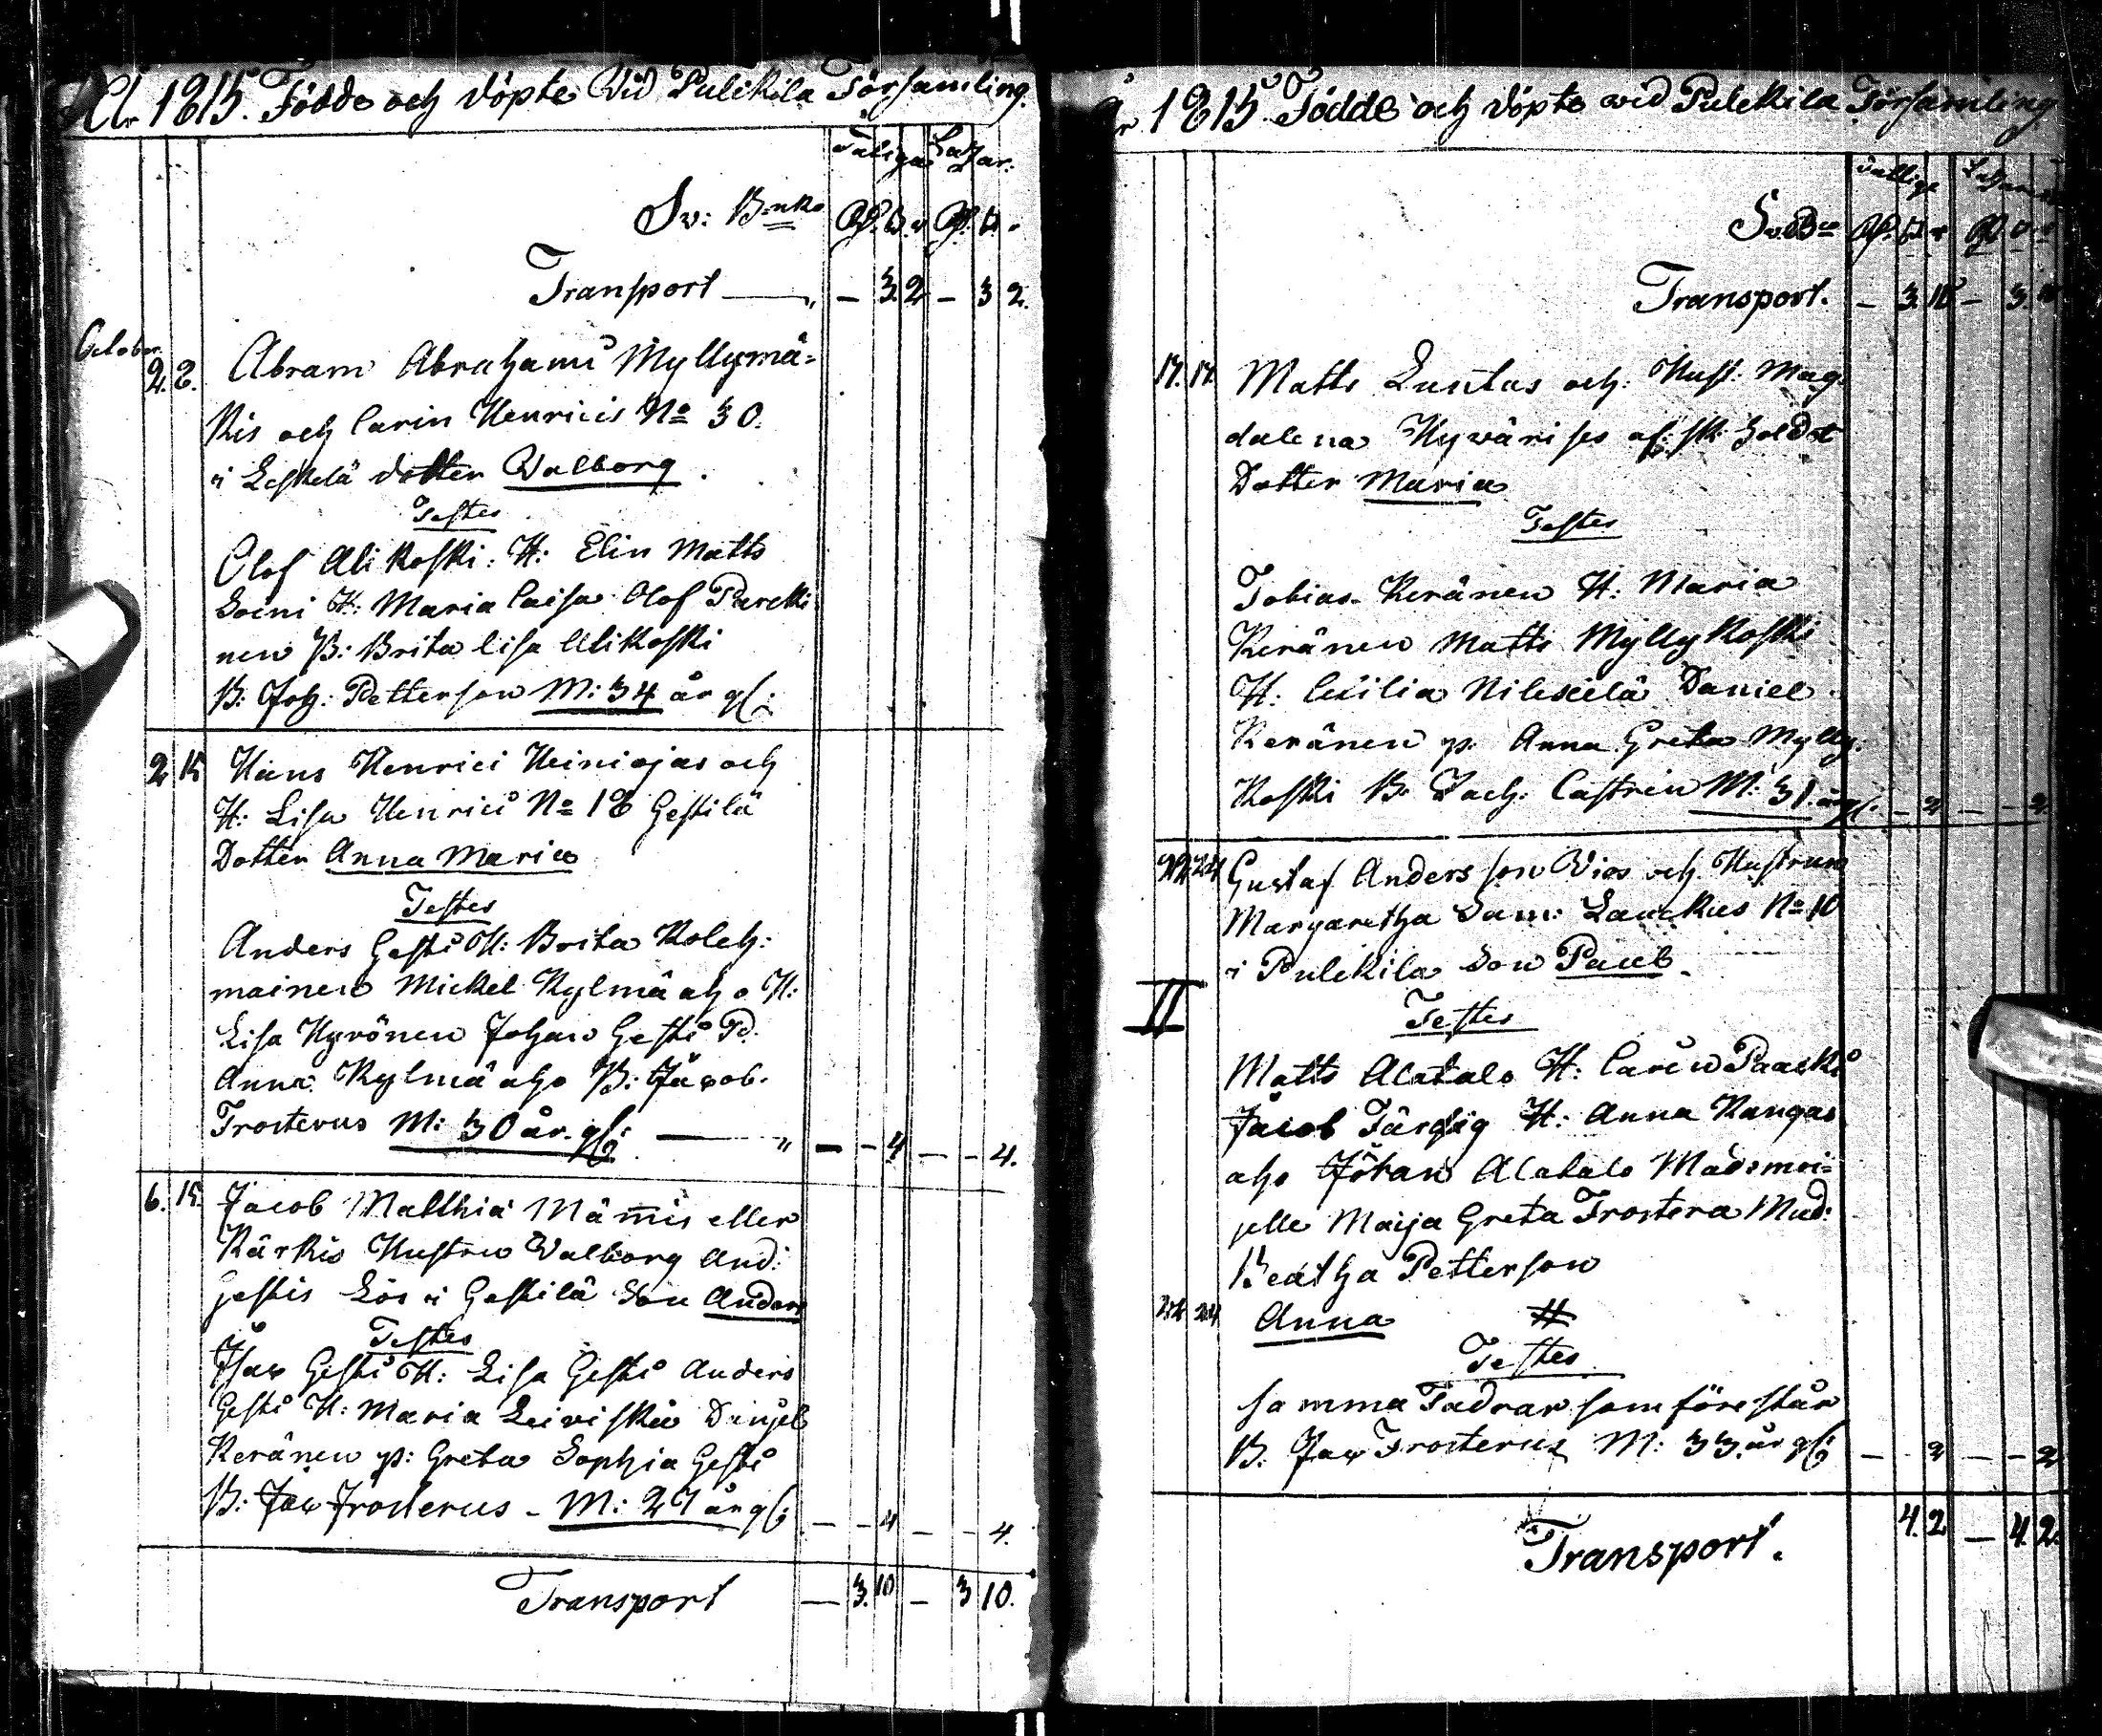 År 1815. Födde och döpte Vid Pulckila Församling.
Fatiga Lazar.
Sv: B:nko
Transport — " — 3. 2 — 3 2.
October.
2. 8. Abram Abrahami Myllymä-
kis och Carin Henricis No 30.
i Leskelä dotter Walborg.
Testes
Olof Alikoski: H: Elin Matts
Soini H: Maria Caisa Olof
nen P: Brita Lisa Alikoski
B: Joh: Petterson M: 34 år gl:
2 15 Hans Henrici Heiniojas och
H: Lisa Henrici No 18 Gestilä
Dotter Anna Maria
Testes
Anders Gesti H: Brita Koleh:
mainen Mickel Kylmäaho H:
Lisa Hyvönen Johan Gesti P.
Anna Kylmäaho B: Jacob.
Frosterus M: 30 år. gl: — " — - 4 — - 4.
6. 15. Jacob Matthiæ Mämis eller
Kärkis Hustru Walborg And:
Gestis Lös i Gestilä Son Anders
Testes
Isac Gesti H: Lisa Gesti Anders
Gesti H: Maria Leiviskä Daniel
Keränen p: Greta Sophia Gesti
B: Jac Frosterus - M: 27 år gl: — - 4 — - 4.
Transport — 3. 10 — 3 10.
År 1815. Födde och döpte wid Pulckila Församling
Fattige
Sv. B:co
Transport. — 3. 10 — 3. 10
17. 17. Matts Luntas och: Hust: Mag-
dalena Hyvärises af: sk: Soldat
Dotter Maria
Testes
Tobias Keränen H: Maria
Keränen Matts Myllykoski
H: Cecilia Daniel
Keränen p. Anna Greta Mylly-
koski B. Zach: Castrén M: 31. år gl. — - 2 — - 2
22 24 Gustaf Anders son Vios och Hustrun
Margaretha Dam: Lauckus No 10
i Pulckila Son Paul
II
Testes
Matts Alatalo H: Carin Paaski
Jacob Färdig H: Anna Kangas
aho Johan Alatalo Mademoi-
selle Maija Greta Frostera Mad:
Beatha Petterson
22 24 Anna #
Testes
samma Fadrar som förestår
B. Jac Frosterus M: 33. år gl: — - 2 — - 2
Transport. 4. 2 — 4. 2.